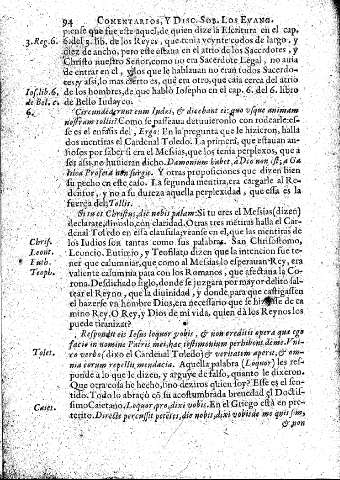 94 COMENTARIOS, Y DISC. SOB. LOS EVANG.
piense que fue este aquel, de quien dize la Escritura en el cap.
3. Reg. 6. 6. del 3. lib. de los Reyes, que tenia veynte codos de largo, y
diez de ancho, pero este estaua en el atrio de los Sacerdotes, y
Christo nuestro Señor, como no era Sacerdote Legal, no auia
de entrar en el, y los que le hablauan no eran todos Sacerdo-
es, y assi, lo mas cierto es, que era otro, que caía cerca del atrio
Ios. lib. 6. de los hombres, de que habló Iosepho en el cap. 6. del 6. libro
de Bel. c. de Bello Iudayco.
6. Circundederunt eum Iudei, & dicebant ei: quo vsque animam
nostram tollis? Como se passeaua detuuieronlo con rodearle: es-
se es el enfasis del, Ergo: En la pregunta que le hizieron, halla
dos mentiras el Cardenal Toledo. La primera, que estauan an-
siosos por saber si era el Messias, que los tenia perplexos, que a
ser assi, no huuieran dicho. Dæmonium habet, à Dio non est: a Ga-
lilea Profeta non surgit. Y otras proposiciones que dizen bien
su pecho en este caso. La segunda mentira, era cargarle al Re-
dentor, y no a su dureza aquella perplexidad, que essa es la
fuerça del, Tollis.
Si tu es Christus, dic nobis palam: Si tu eres el Messias (dizen)
declarate, diuoslo, con claridad. Otras tres mentiras halla el Car-
denal Toledo en esta clausula, y ense en el, que las mentiras de
Chris. los Iudios son tantas como sus palabras. San Chrisostomo,
Leont. Leoncio, Eutimio, y Teofilato dizen que la intencion fue te-
Euth. ner que calumniar, que como al Messias lo esperauan Rey, era
Teoph. valiente calumnia para con los Romanos, que afectaua la Co-
rona. Desdichado siglo, donde se juzgara por mayor delito sal-
tear el Reyno, que la diuinidad, y donde para que castigassen
el hazerse vn hombre Dios, era necesario que se hiziesse de ca
mino Rey. O Rey, y Dios de mi vida, quien dá los Reynos los
puede tiranizar?
Respondit eis Iesus loquor vobis, & non creditis opera que ego
facio in nomine Patris mei, hæc testimonium perhibent de me. Vni-
Tolet. co verbo (dixo el Cardenal Toledo) & veritatem aperit, & om-
nia eorum repellit mendacia. Aquella palabra (Loquor) les res-
ponde a lo que le dizen, y arguye de falso, quanto le dixeron.
Que otra cosa he hecho, sino deziros quien soy? Esse es el sen-
tido. Todo lo abraçó cõ su acostumbrada breuedad el Doctis-
Caiet. simo Caietano. Loquor, pro, dixi vobis. En el Griego está en pre-
terito. Directè percussit petētes, dic nobis, dixi vobis de me quis sim,
& non